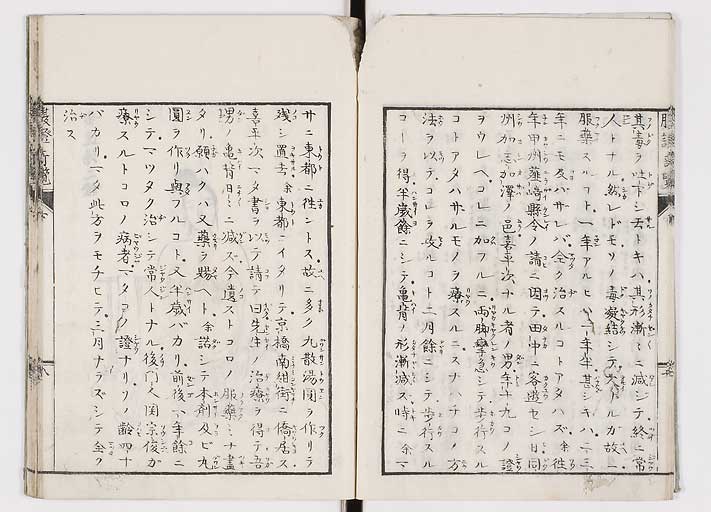 其毒ヲ吐下シ去トキハ其形漸々ニ減ジテ終ニ常
人トナル然レドモソノ毒凝結シテ大ナルカ故ニ
服藥スルコト一年アルヒハ一年半甚シキハ二三
年ニモ及バサレバ全ク治スルコトアタハズ余往
年甲州韮﨑縣令ノ請ニ因テ田中ニ客遊セシ日同
州加志加澤ノ邑喜平次ナル者ノ男年十九コノ證
ヲウレヘコレニ加フルニ両脚攣急シテ歩行スル
コトアタハサルモノヲ療スルニスナハチコノ方
法ヲ以テコレヲ攻ルコト二月餘ニシテ歩行スル
コヲ得半歳餘ニシテ亀背ノ形漸減ス時ニ余マ
サニ東都ニ徃ントス故ニ多ク丸散湯圓ヲ作リテ
残シ置去余東都ニイタリテ京橋南紺街ニ僑居ス
喜平次マタ書ヲ以テ請テ曰先生ノ治療ヲ得テ吾
男ノ亀背日々ニ減ス今遺ストコロノ服藥ミナ盡
タリ願ハクハ又藥ヲ賜ヘト余諾シテ本劑及ビ丸
圓ヲ作リ與フルコト又半歳バカリ前後二年餘ニ
シテマツタク治シテ常人トナル後門人関宗俊カ
療スルトコロノ病者マタコノ證ナリソノ齢四十
バカリマタ此方ヲモチヒテ三月ナラズシテ全ク
治ス